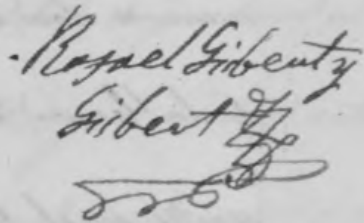 Rafael Gibert y
Gibert